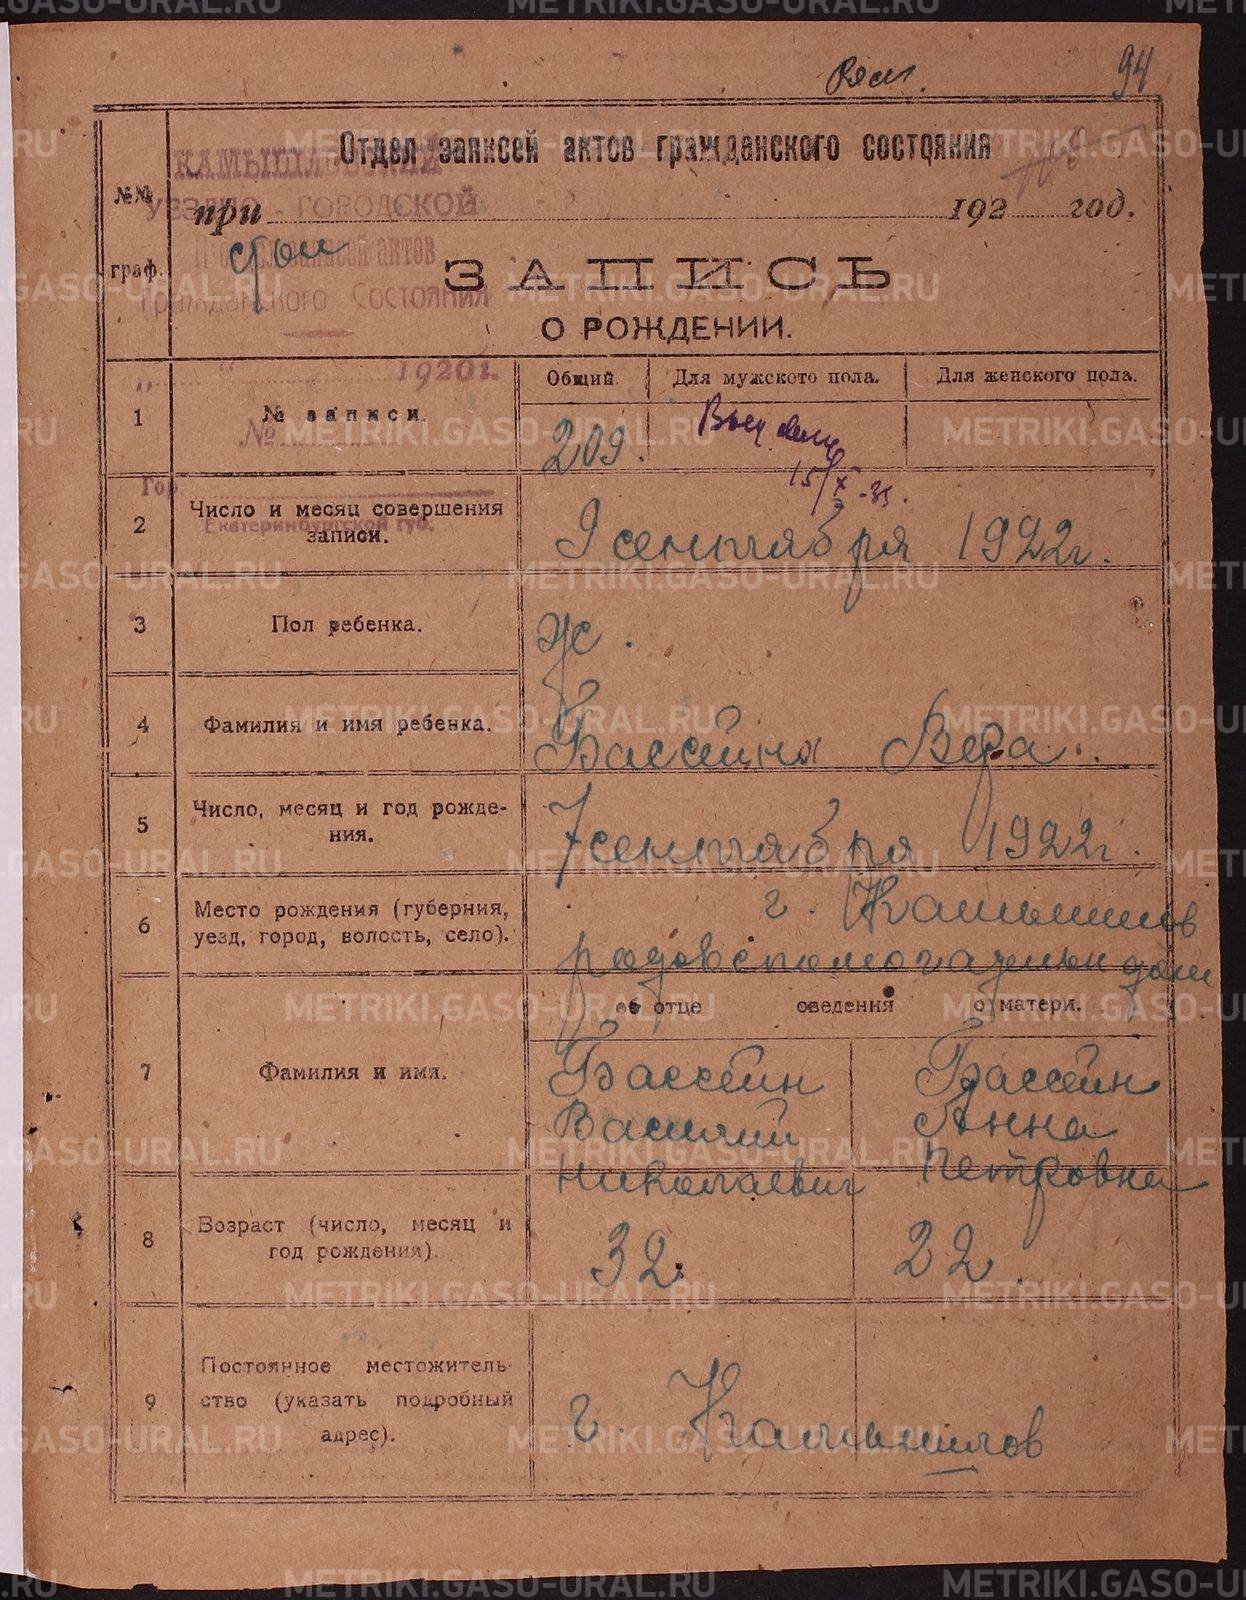 94
Отдел записей актов гражданского состояния
КАМЫШЛОВСКИЙ
№№
УЕЗДНО-ГОРОДСКОЙ
при 192 год.
записей актов
граф.
ЗАПИСЬ
Гражданского Состояния
О РОЖДЕНИИ.
" " 1920 г.
Общий Для мужского пола. Для женского пола.
1 № записи. 209.
№
15/X-35.
Гор.
2 Число и месяц совершения
Екатеринбургской губ.
записи.
9 сентября 1922 г.
3 Пол ребенка. Ж.
4 Фамилия и имя ребенка. Бассейна Вера.
5 Число, месяц и год рожде-
ния.
7 сентября 1922 г.
6 Место рождения (губерния,
уезд, город, волость, село).
г. Камышлов
родовспомогательн дом
об отце сведения о матери.
7 Фамилия и имя.
Бассейн Бассейн
Василий Анна
Николаевич Петровна
8 Возраст (число, месяц и
год рождения).
32. 22.
9 Постоянное местожитель-
ство (указать подробный
адрес).
г. Камышлов
METRIKI.GASO-URAL.RU